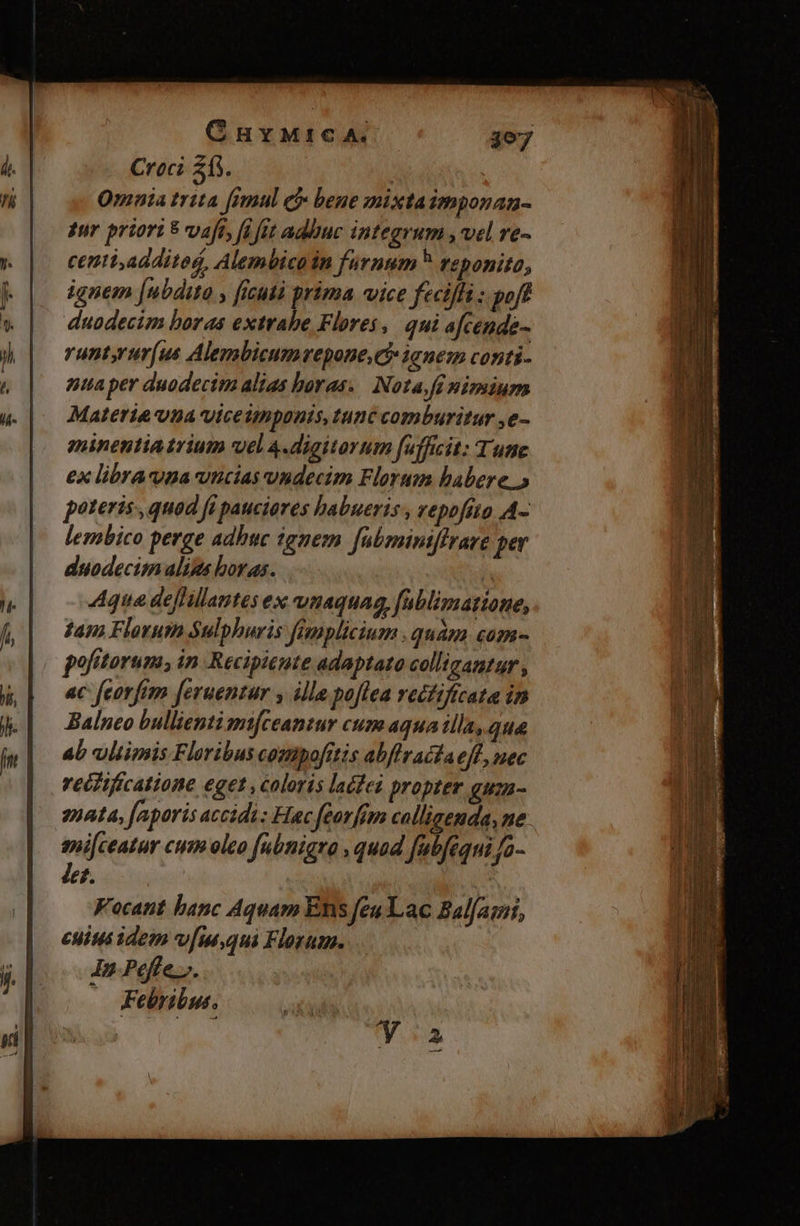 CHYMICA. 307
Croci ʒß.
Omnia trita ſimul & bene mixta imponan-
tur priori g vaſi, ſi ſit adhuc integrum, vel re-
centi, additoq́, Alembico in furnum h reponito,
ignem ſubdito, ſicuti prima vice feciſti: poſt
duodecim horas extrahe Flores, qui aſcende-
runt, rurſus Alembicum repone, & ignem conti-
nua per duodecim alias horas. Nota, ſi nimium
Materiæ vna vice imponis, tunc comburitur, e-
minentia trium vel 4. digitorum ſufficit: Tunc
ex libra vna vncias vndecim Florum habere
poteris, quod ſi pauciores habueris, repoſito A-
lembico perge adhuc ignem ſubminiſtrare per
duodecim alias horas.
Aquæ deſtillantes ex vnaquaq, ſublimatione,
tam Florum Sulphuris ſimplicium, quàm com-
poſitorum, in Recipiente adaptato colligantur,
ac ſeorſim ſeruentur, illa poſtea rectificata in
Balneo bullienti miſceantur cum aqua illa, quæ
ab vltimis Floribus compoſitis abſtracta eſt, nec
rectificatione eget, coloris lactei propter gum-
mata, ſaporis accidi: Hæc ſeorſim colligenda, ne
miſceatur cum oleo ſubnigro, quod ſubſequi ſo-
let.
Vocant hanc Aquam Ens ſeu Lac Balſami,
cuius idem vſus, qui Florum.
In Peſte.
Febribus.
V 2